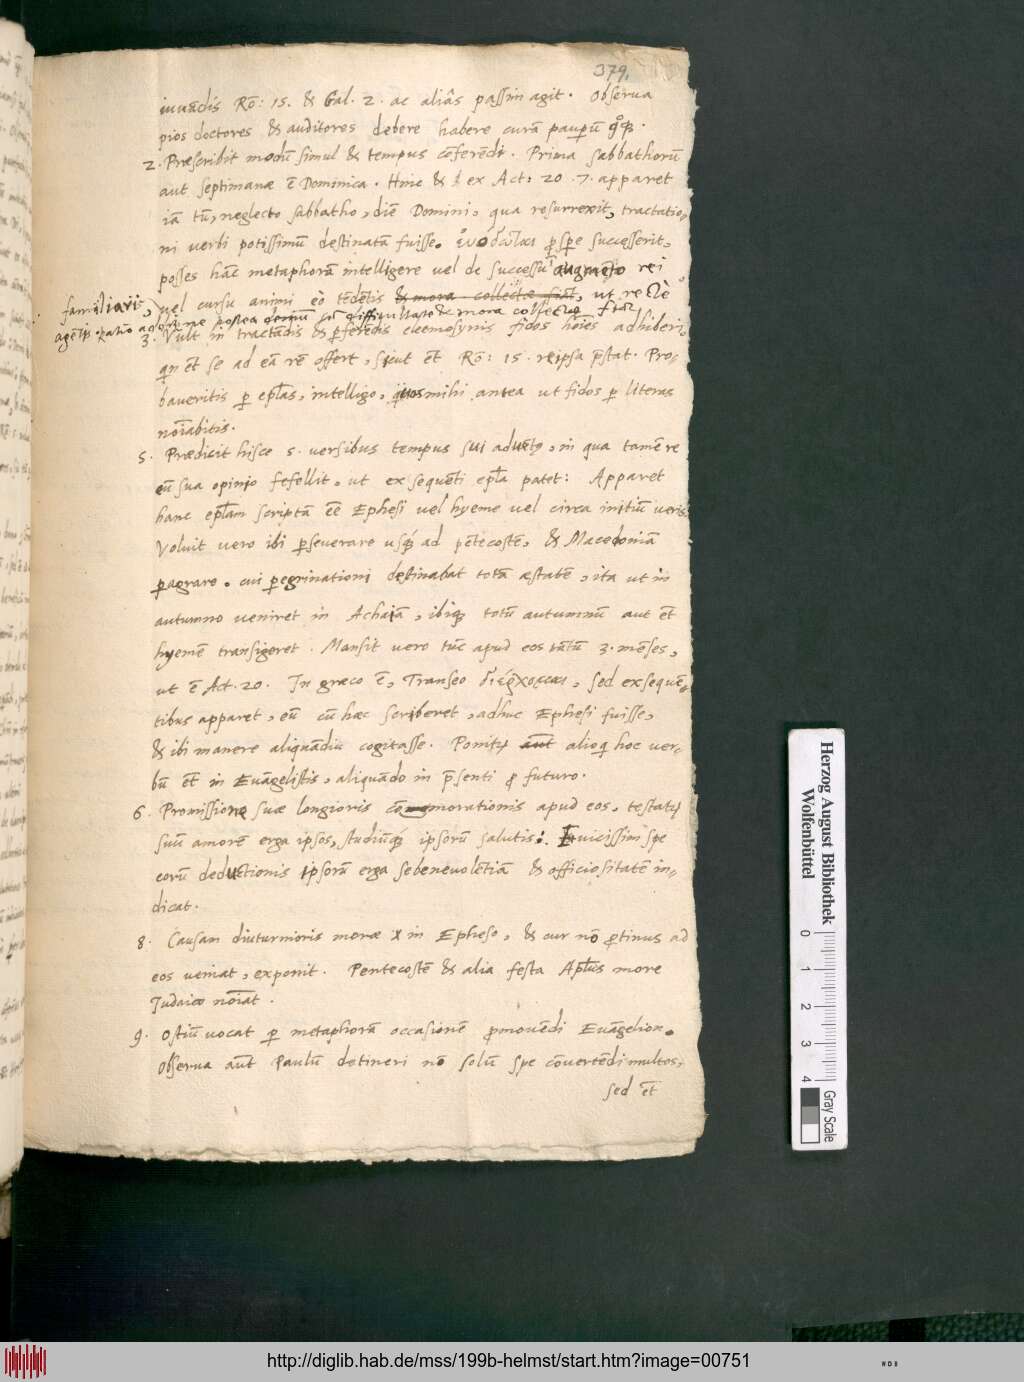 379.
iuuādis Rō: 15. & Gal. 2. ac aliâs passim agit. Obserua
pios doctores & auditores debere habere curā paup̄u
2. Præscribit modū simul & tempus cōferēdi. Prima sabbathorū
aut septimanæ ē Dominica. Hinc & ex Act: 20. 7. apparet
iā tū, neglecto sabbatho, diē Domini, qua resurrexit, tractatio-
ni uerbi potissimū destinatā fuisse. successerit,
posses hāc metaphorā intelligere uel de successu augmēto rei
familiari, uel cursu animi eò tēdētis & mora collectæ fiat, ut rectè
postea demum difficultate & mora collectio fiat
3. Vult in tractādis & p̄ferēdis eleemosynis fidos hoīes adhiberi,
ēt se ad eā rē offert, sicut ēt Rō: 15. reipsa p̄stat. Pro-
baueritis p̄ ep̄las, intelligo, quos mihi antea ut fidos p̄ literas
noīabitis.
5. Prædicit hisce 5. uersibus tempus sui aduētꝰ, in qua tamē re
eū sua opinio fefellit, ut ex sequēti ep̄la patet: Apparet
hanc ep̄lam scriptā eē Ephesi uel hyeme uel circa initiū ueris
Voluit uero ibi p̄seuerare usq́ ad pētecostē, & Macedoniā
p̄agrare. cui p̄egrinationi destinabat totā æstatē, ita ut in
autumno ueniret in Achaiā, ibiq́ totū autumnū aut ēt
hyemē transigeret. Mansit uero tūc apud eos tātū 3. mēses,
ut ē Act. 20. In græco ē, Transeo διέρχομαι, sed ex sequē-
tibus apparet, eū cū hæc scriberet, adhuc Ephesi fuisse,
& ibi manere aliquādiu cogitasse. Ponitꝛ aūt alioq́ hoc uer-
bū ēt in Euāgelistis, aliquādo in p̄senti p̄ futuro.
6. Promissione suæ longioris cōmorationis apud eos, testatꝛ
suū amorē erga ipsos, studiūq́ ipsorū salutis: uicissim spe
eorū deductionis ipsorū erga se beneuolētiā & officiositatē in-
dicat.
8. Causam diuturnioris moræ in Epheso, & cur nō p̄tinus ad
eos ueniat, exponit. Pentecostē & alia festa Ap̄lus more
Judaico noīat.
9. Ostiū uocat p̄ metaphorā occasionē p̄mouēdi Euāgelion.
Obserua aūt Paulū detineri nō solū spe cōuertēdi multos,
sed ēt
Herzog August Bibliothek
Wolfenbüttel
0 1 2 3 4
Gray Scale
http://diglib.hab.de/mss/199b-helmst/start.htm?image=00751